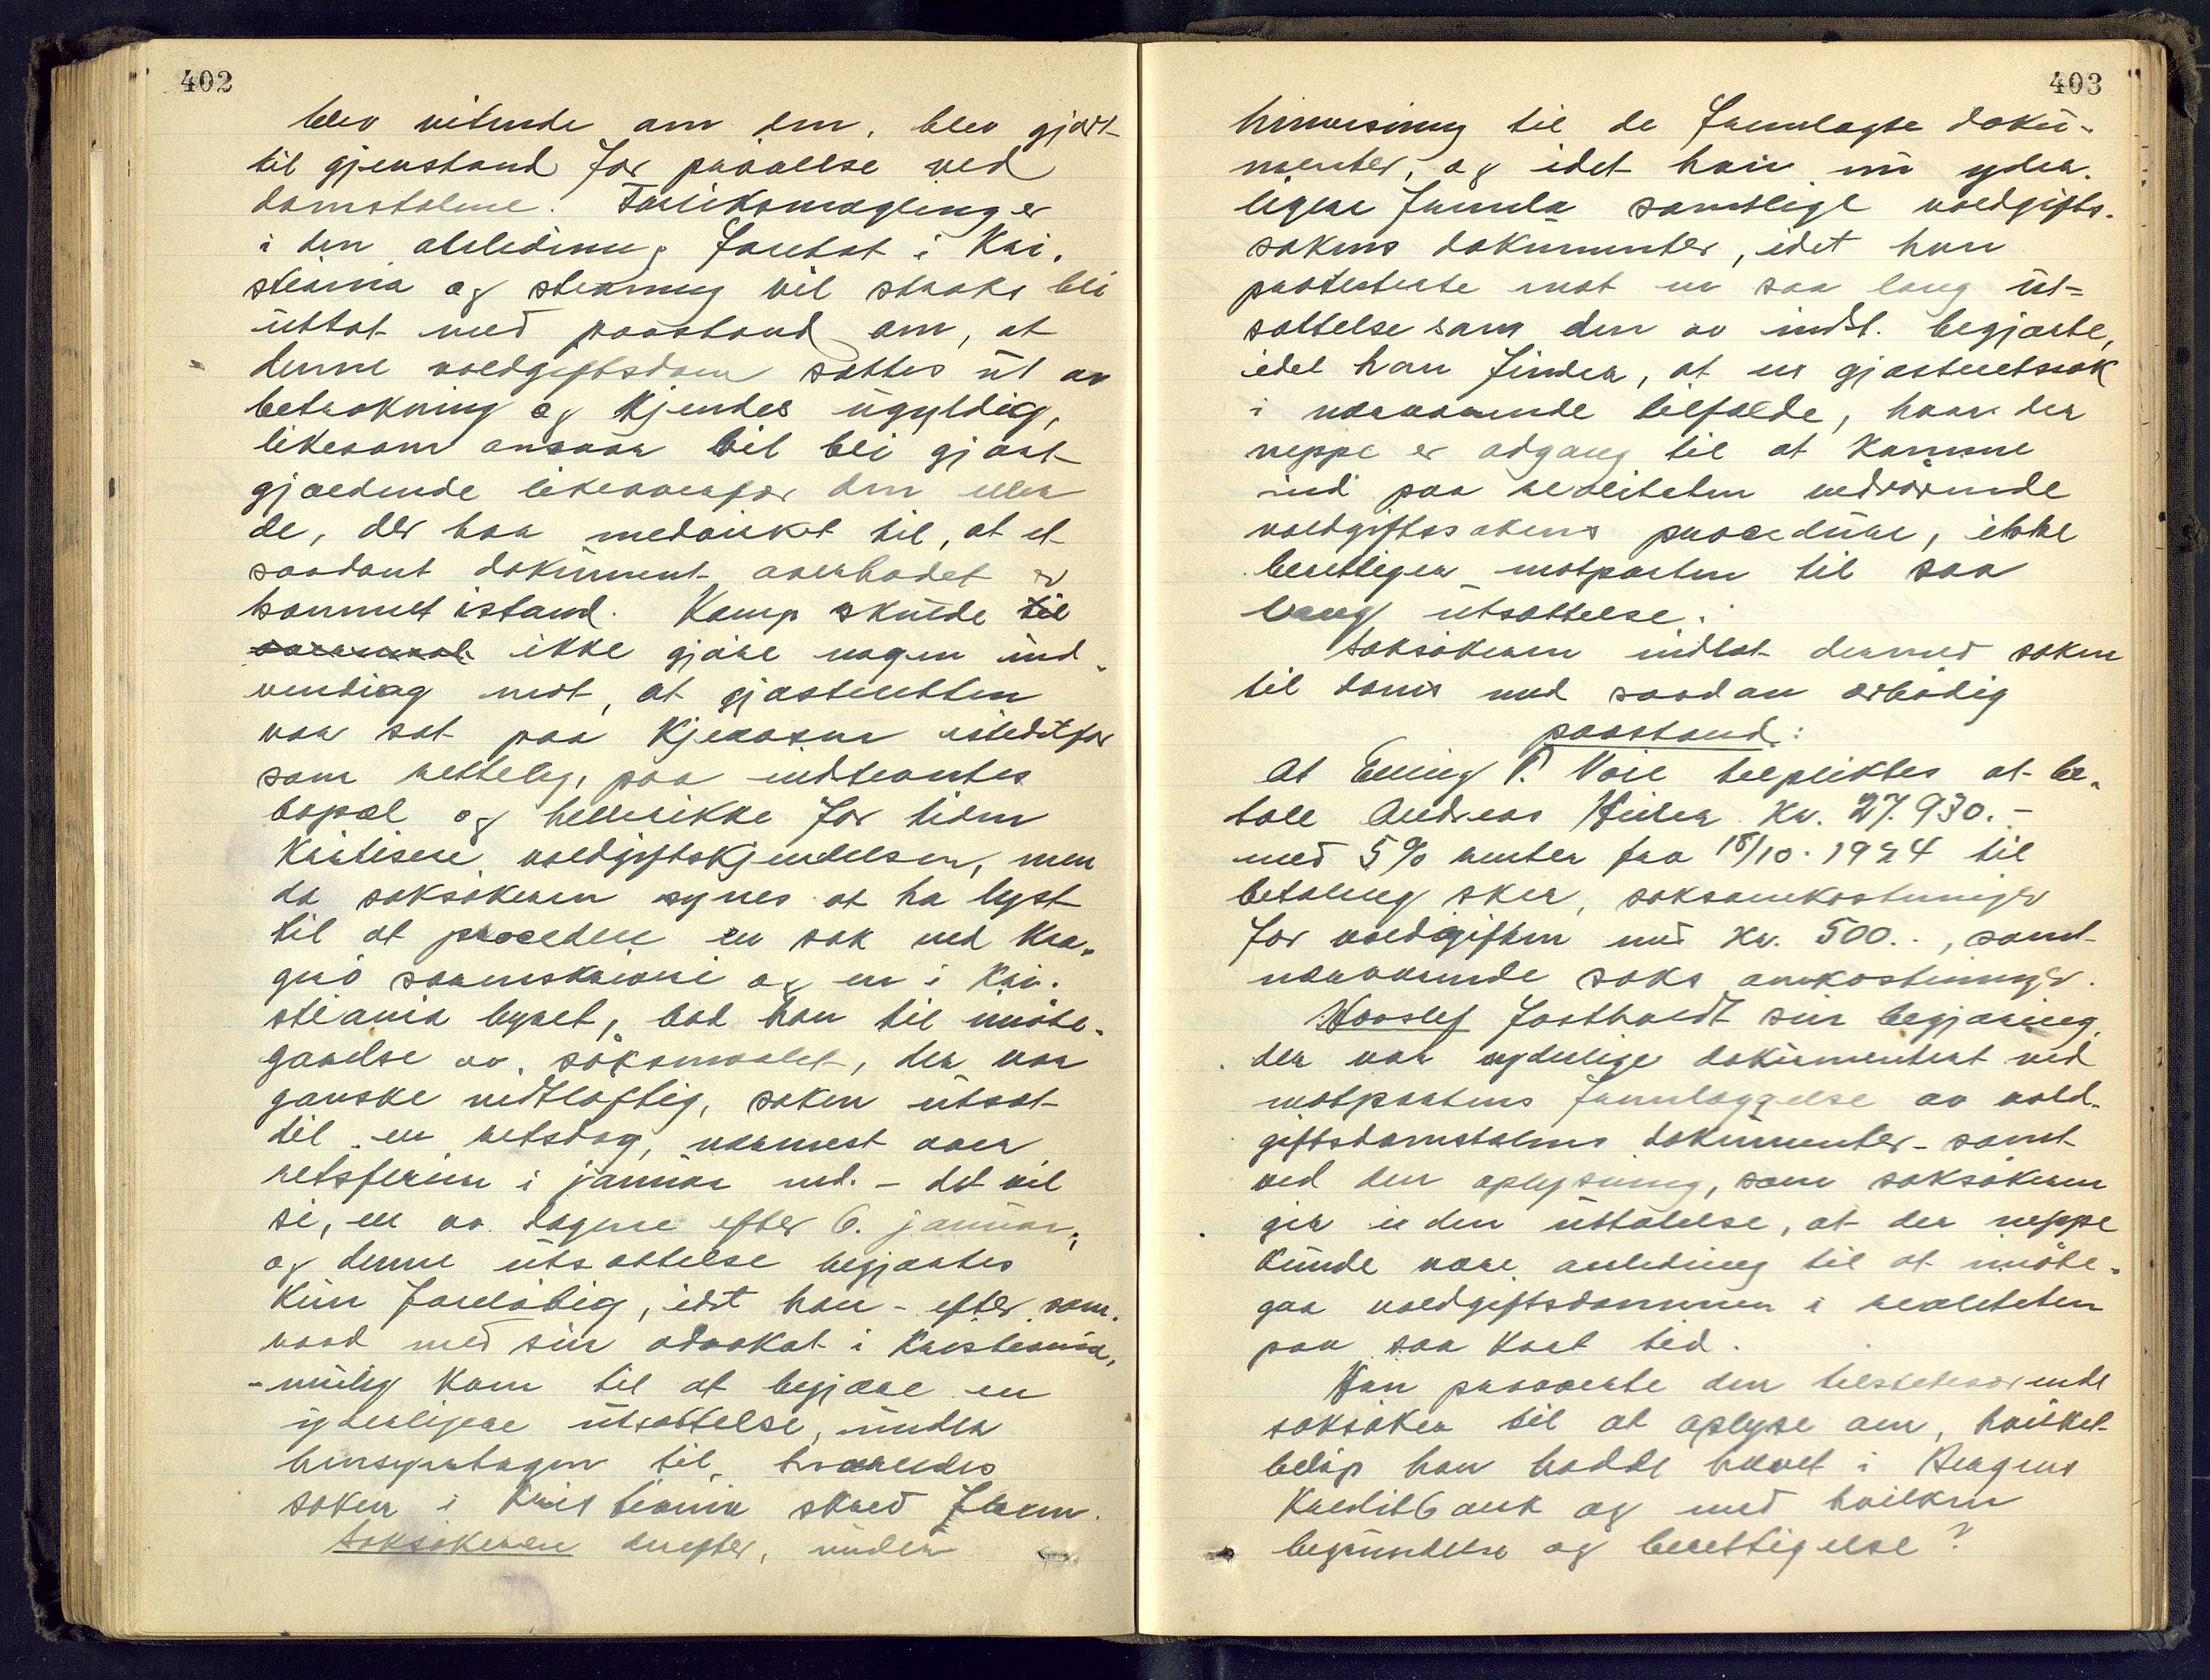 402
blev vitende om den, blev gjort
til gjenstand for prövelse ved
domstolene. Forliksmægling er
i den anledning foretat i Kri-
stiania og stevning vil straks bli
uttat med paastand om, at
denne voldgiftsdom sættes ut av
betraktning og kjendes ugyldig,
likesom ansvar vil bli gjort
gjældende likeoverfor den eller
de, der har medvirket til, at et
saadant dokument overhodet er
kommet istand. Kamp skulde til
ikke gjöre nogen ind-
vending mot, at gjesteretten
var sat paa Kjerrasen istedetfor
som rettelig, paa indstevntes
bopæl og hellerikke for tiden
kritisere voldgiftskjendelsen, men
da saksökeren synes at ha lyst
til at procedere en sak ved Kra-
gerö sorenskriveri og en i Kri-
stiania byret, bad han til imöte-
gaaelse av söksmaalet, der var
ganske vidtlöftig, saken utsat
til en retsdag, nærmest over
retsferien i januar md. - det vil
si, en av dagene efter 6. januar,
og denne utsættelse begjærtes
kun forelöbig, idet han - efter sam-
raad med sin advokat i Kristiania,
- mulig kom til at begjære en
yderligere utsættelse, under
hensyntagen til, hvorledes
saken i Kristiania skred frem.
Saksökeren derefter, under
403
henvisning til de fremlagte doku-
menter, og idet han nu yder-
ligere fremla samtlige voldgifts-
sakens dokumenter, idet han
protesterte mot en saa lang ut-
sættelse som den av indst. begjærte,
idet han finder, at en gjesteretssak
i nærværende tilfælde, hvor der
neppe er adgang til at komme
ind paa realiteten vedrörende
voldgiftssakens procedure, ikke
berettiger motparten til saa
lang utsættelse.
Saksökeren indlot dermed saken
til doms med saadan ærbödig
paastand:
At Elling T. Vold tilpliktes at be-
tale Andreas Kr. 27.930.-
med 5% renter fra 18/10. 1924 til
betaling sker, saksomkostninger
for voldgiften med Kr. 500.-, samt
nærværende saks omkostninger.
fastholdt sin begjæring,
der var ydderlige dokumentert ved
motpartens fremlæggelse av vold-
giftsdomstolens dokumenter - samt
ved den oplysning, som saksökeren
gir i den uttalelse, at der neppe
kunde være anledning til at imöte-
gaa voldgiftsdommen i realiteten
paa saa kort tid.
Han provoserte den tilstedeværende
saksöker til at oplyse om, hvilket
belöp han hadde hævet i Bergens
Kreditbank og med hvilken
begrundelse og berettigelse?